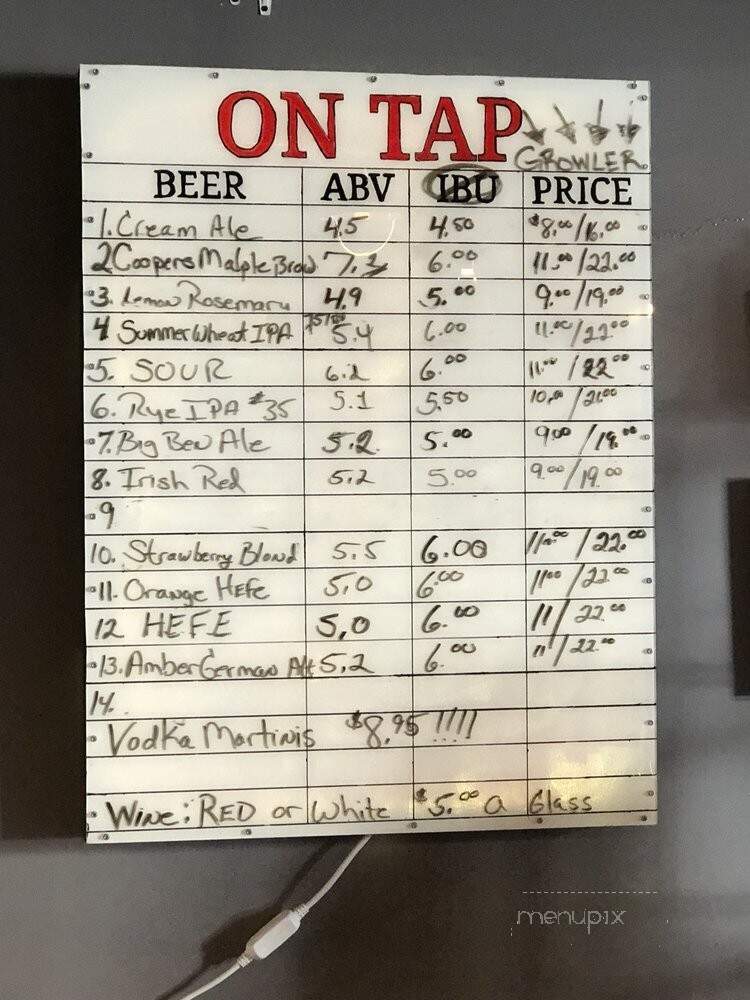 ON TAP
GROWLER
BEER ABV IBU PRICE
1. Cream Ale 4.5 4.50 $8.00/16.00
2 Coopers Malple Brow 7.3 6.00 11.00/22.00
3. Lemon Rosemary 4.9 5.00 9.00/19.00
4 Summer Wheat IPA 5.4 6.00 11.00/22.00
5. SOUR 6.2 6.00 11.00/22.00
6. Rye IPA #35 5.1 5.50 10.00/21.00
7. Big Ben Ale 5.2 5.00 9.00/19.00
8. Irish Red 5.2 5.00 9.00/19.00
9
10. Strawberry Blond 5.5 6.00 11.00/22.00
11. Orange Hefe 5.0 6.00 11.00/22.00
12 HEFE 5.0 6.00 11/22.00
13. Amber German Alt 5.2 6.00 11/22.00
14.
Vodka Martinis $8.95 !!!!
Wine: RED or White $5.00 a Glass
menupix